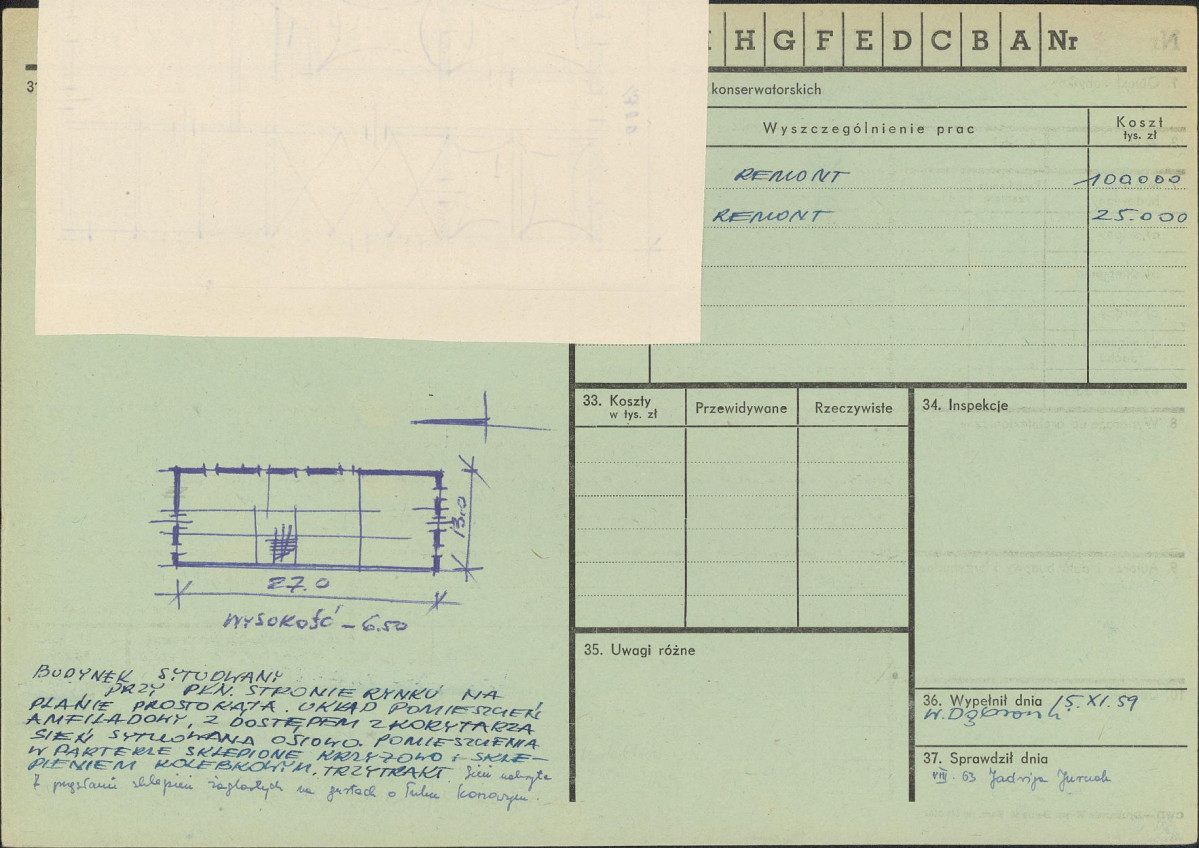 H G F E D C B A Nr
31
konserwatorskich
Wyszczególnienie prac
Koszt
tys. zł
REMONT 100000
REMONT 25.000
33. Koszty
w tys. zł
Przewidywane
Rzeczywiste
34. Inspekcje
13.0
27.0
WYSOKOŚĆ – 6.50
35. Uwagi różne
BUDYNEK SYTUOWANY
PRZY PŁN. STRONIE RYNKU NA
PLANIE PROSTOKĄTA. UKŁAD POMIESZCZEŃ
AMFILADOWY, Z DOSTĘPEM Z KORYTARZA
SIEŃ SYTUOWANA OSIOWO. POMIESZCZENIA
W PARTERZE SKLEPIONE KRZYŻOWO I SKLE-
PIENIEM KOLEBKOWYM, TRZYTRAKT. Sień nakryta
sklepień żaglastych na gurtach o łuku koszowym.
36. Wypełnił dnia 15.XI.59
W. Dąbrowski
37. Sprawdził dnia
VIII. 63 Jadwiga